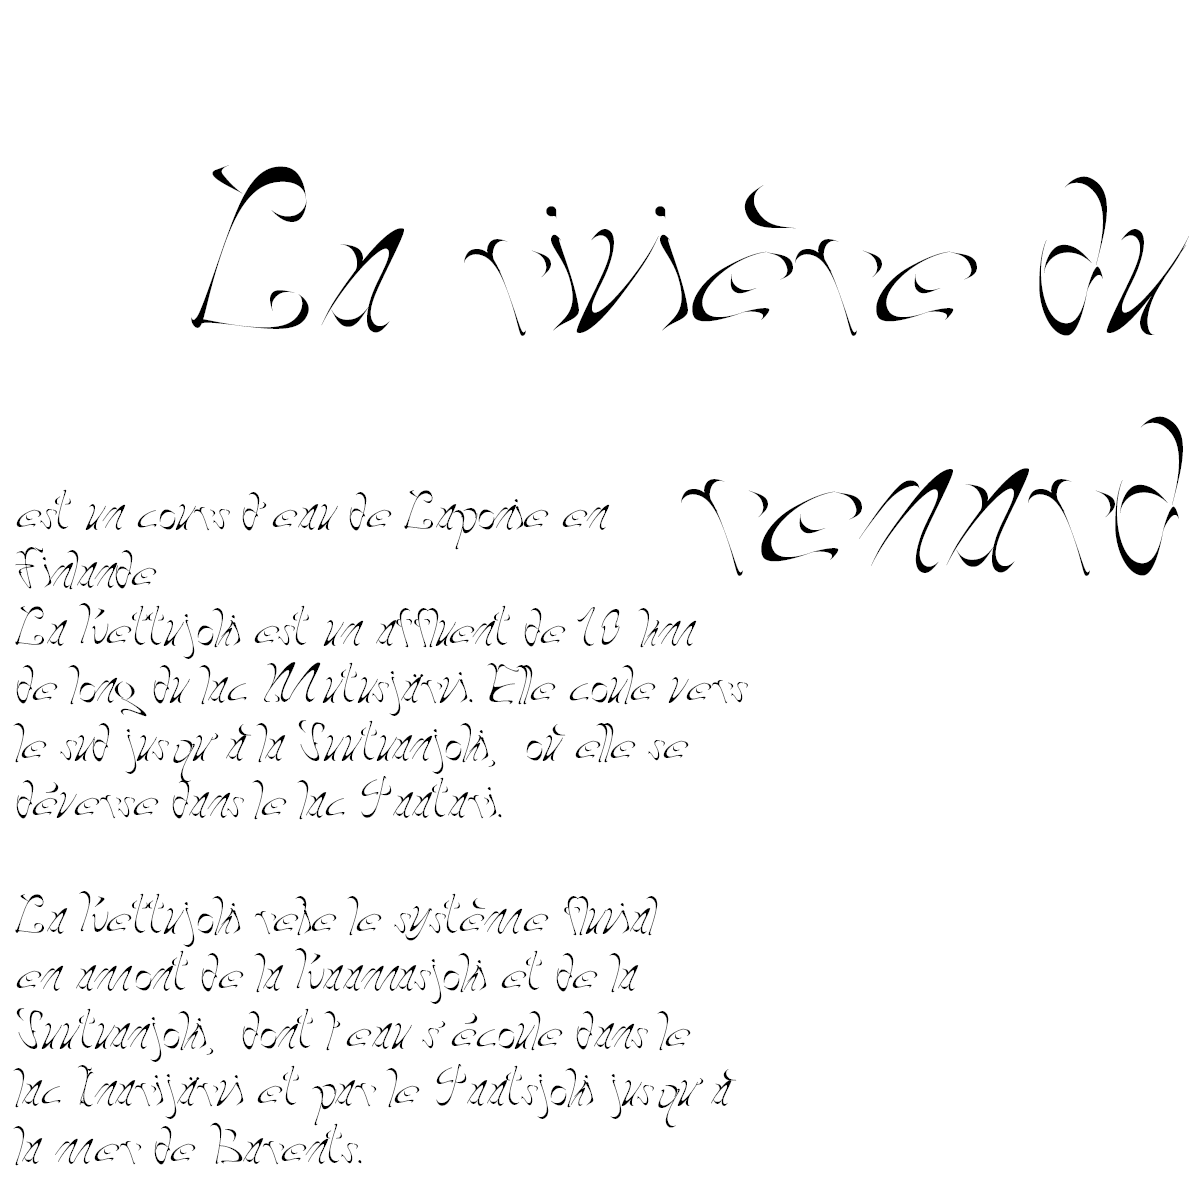 La rivière du
renard
est un cours d'eau de Laponie en
Finlande
La Kettujoki est un affluent de 18 km
de long du lac Mutusjärvi. Elle coule vers
le sud jusqu'à la Suutuanjoki, où elle se
déverse dans le lac Paatari.
La Kettujoki relie le système fluvial
en amont de la Kaamasjoki et de la
Suutuanjoki, dont l'eau s'écoule dans le
lac Inarijärvi et par le Paatsjoki jusqu'à
la mer de Barents.